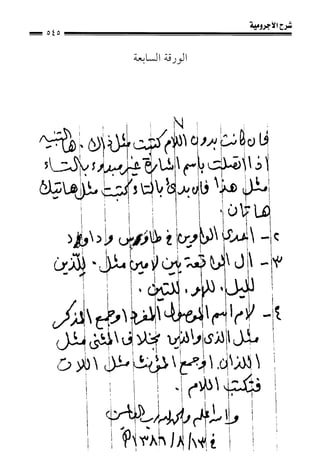 شرح الآجرومية
٥٤٥
الورقة السابعة
٧
فإن كانت بدون اللام كتبت مثل ذاك. ها التنبيه
إذا اتصلت باسم إشارة غير مبدوء بالتاء
مثل هذا فإن بدئ بالتاء كتبت مثل هاتيك
هاتان.
٢- إحدى الواوين في طاووس وداود
٣- ال الواقعة بين لامين مثل. للذين
لليل. للهو. للتين.
٤- لام اسم الموصول المفرد أو جمع المذكر
مثل الذي والذين بخلاف المثنى مثل
اللذان. أو جمع المؤنث مثل اللات
فتكتب اللام.
والله أعلم والحمد لله رب العالمين
في ١٣/٨/١٣٨٦ﻫ